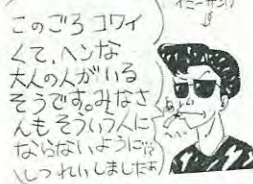 このごろ コワイ
くて、ヘンな
大人の人がいる
そうです。みなさ
んも そういう人に
ならないように!?
しつれいしましたぁ